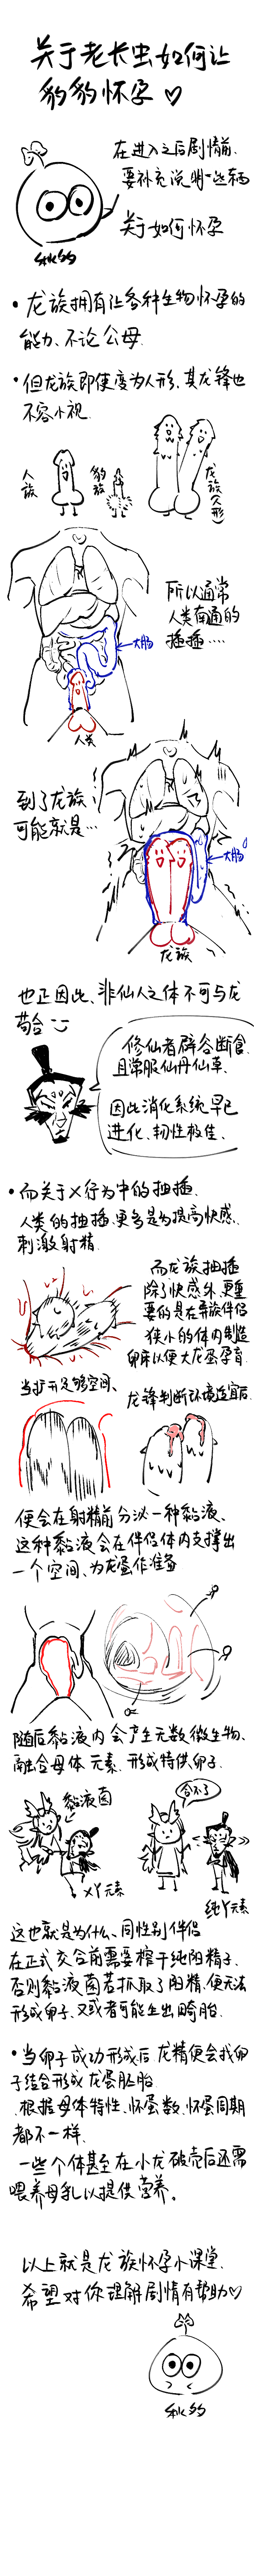 关于老长虫如何让
豹豹怀孕♡
在进入之后剧情前.
要补充说明一些东西
关于如何怀孕
秋的
•龙族拥有让各种生物怀孕的
能力、不论公母.
•但龙族即使变为人形,其龙锋也
不容小视.
人族
豹族
龙族(人形)
所以通常
人类南通的
插插····
大肠
人类
到了龙族
可能就是…
大肠
龙族
也正因此、非仙人之体不可与龙
苟合
修仙者辟谷断食.
且常服仙丹仙草.
因此消化系统早已
进化、韧性极佳.
•而关于X行为中的抽插.
人类的抽插.更多是为提高快感.
刺激射精
而龙族抽插
除了快感外.更重
要的是在异族伴侣
狭小的体内制造
卵床以便大龙蛋孕育.
当扩开足够空间、
龙锋判断环境适宜后.
便会在射精前分泌一种黏液.
这种黏液会在伴侣体内支撑出
一个空间、为龙蛋作准备
随后黏液内会产生无数微生物.
融合母体元素.形成特供卵子.
黏液菌
XY元素
合不了
纯Y元素
这也就是为什么、同性别伴侣
在正式交合前需要榨干纯阳精子.
否则黏液菌若抓取了阳精.便无法
形成卵子、又或者可能生出畸胎.
•当卵子成功形成后龙精便会找卵
子结合形成龙蛋胚胎.
.根据母体特性、怀蛋数、怀蛋周期
都不一样.
一些个体甚至在小龙破壳后还需
喂养母乳以提供营养。
以上就是龙族怀孕小课堂.
希望对你理解剧情有帮助♡
秋的